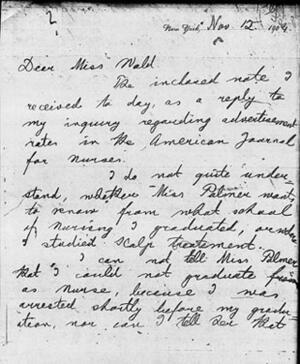 2
New York, Nov 12 190
Dear Miss Wald.
The inclosed note I
received to day, as a reply to
my inquiry regarding advertisement
rates in the American Journal
for Nurses.
I do not quite under-
stand, whether Miss Palmer want
to know from what school
of Nursing I graduated, or where
I studied Scalp Treatement.
I can not tell Miss Palmer
that I could not graduate from
as Nurse, because I was
arrested shortly before my gradu-
ation, nor can I tell her that